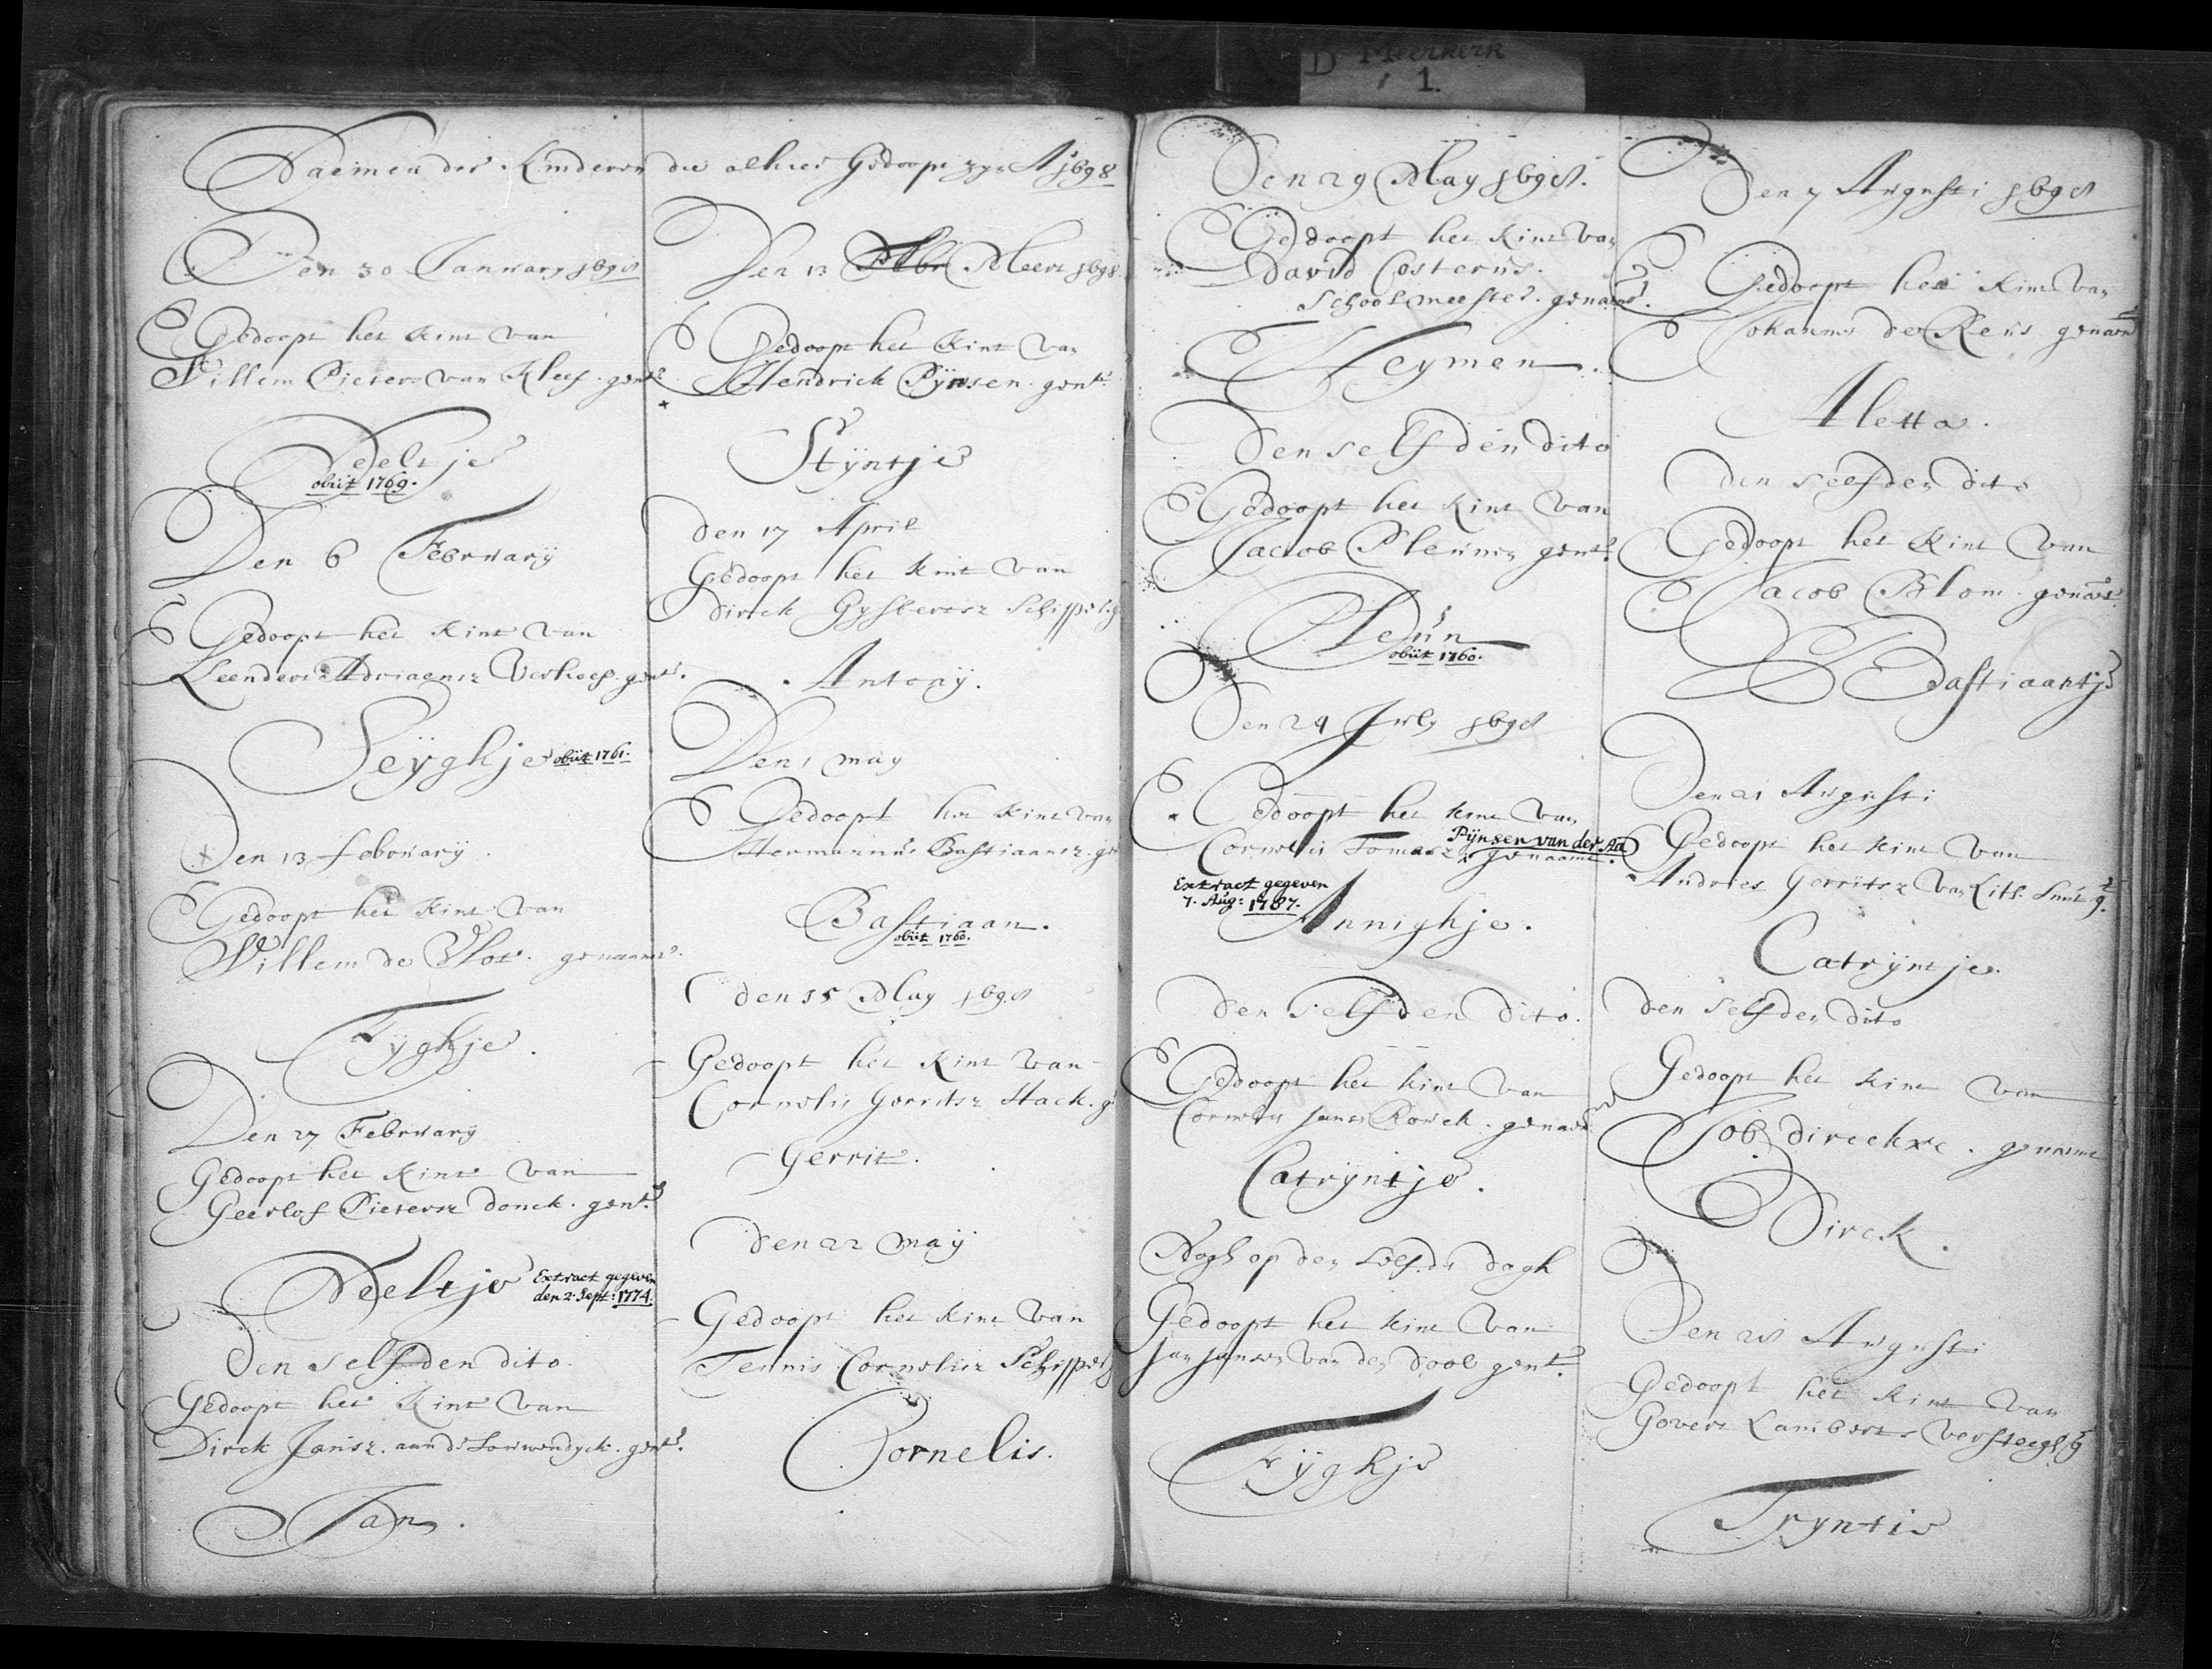 D Meerkerk
1.
Naemen der Kinderen die alhier Gedoopt zyn Aº 1698
Den 30 January 1698
Gedoopt het kint van
Willem Pieters van Kleef. gent.
Neeltje
obiit 1769.
Den 6 February
Gedoopt het kint van
Leendert Adriaensz Verhoef. gent.
Seÿghje obiit 1761.
Den 13 february
Gedoopt het kint van
Willem de Vlot. genaamt.
Fÿghje.
Den 27 February
Gedoopt het kint van
Geerlof Pietersz donck. gent.
Neeltje Extract gegeven
den 2. Sept: 1774.
Den selfden dito
Gedoopt het Kint van
Dirck Jansz. aan de gent.
Jan.
Den 13 Meert 1698
Gedoopt het Kint van
Hendrick Pÿnsen. gent.
Stÿntje
den 17 April
Gedoopt het kint van
dirck Gysbertsz Schippel. g
Antony.
Den 1 may
Gedoopt het kint van
Hermannus Bastiaansz. ge
Bastiaan.
obiit 1760.
den 15 May 1698
Gedoopt het Kint van
Cornelis Gerritsz Hack. g
Gerrit.
den 22 may
Gedoopt het kint van
Tennis Cornelisz Schippel
Cornelis.
Den 29 May 1698.
Gedoopt het kint van
David Costerus.
Schoolmeester. genaemt.
Heymen.
Den selfden dito
Gedoopt het kint van
Jacob Pleunen gent.
Pleun
obiit 1760.
Den 24 July 1698
Gedoopt het kint van
Pÿnsen van der Aa
Cornelis Tomasz genaamt.
Extract gegeven
7. Aug: 1767.
Annighje.
Den selfden dito.
Gedoopt het kint van
Cornelis Jansz Rouck. genaemt
Catrÿntje.
Nogh op den selfde dagh
Gedoopt het kint van
Jan Jansen van den Dool gent.
Fÿghje
Den 7 Augusti 1698
Gedoopt het kint van
Johannes de Reus genaemt
Aletta.
den selfden dito
Gedoopt het kint van
Jacob Blom. genaemt.
Bastiaantje
Den 21 Augusti
Gedoopt het kint van
Andries Gerritsz van Lith. Smit g.
Catrÿntje.
den selfden dito
Gedoopt het kint van
Job dirckxe. genaemt
Dirck.
Den 28 Augusti
Gedoopt het kint van
Govert Lamberts versteegh g
Tryntie